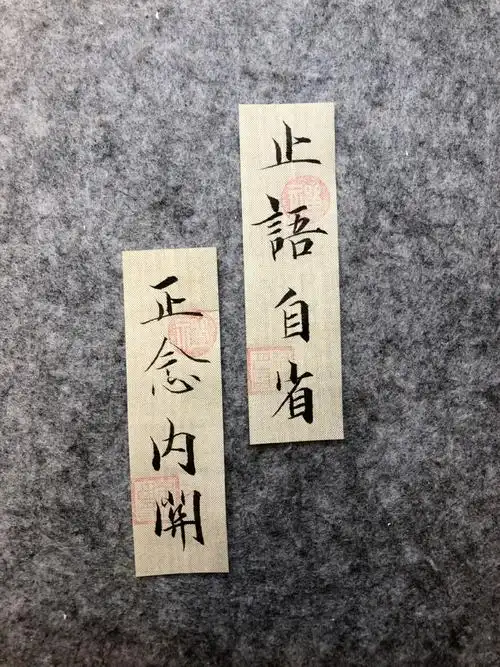 止語自省
正念内開